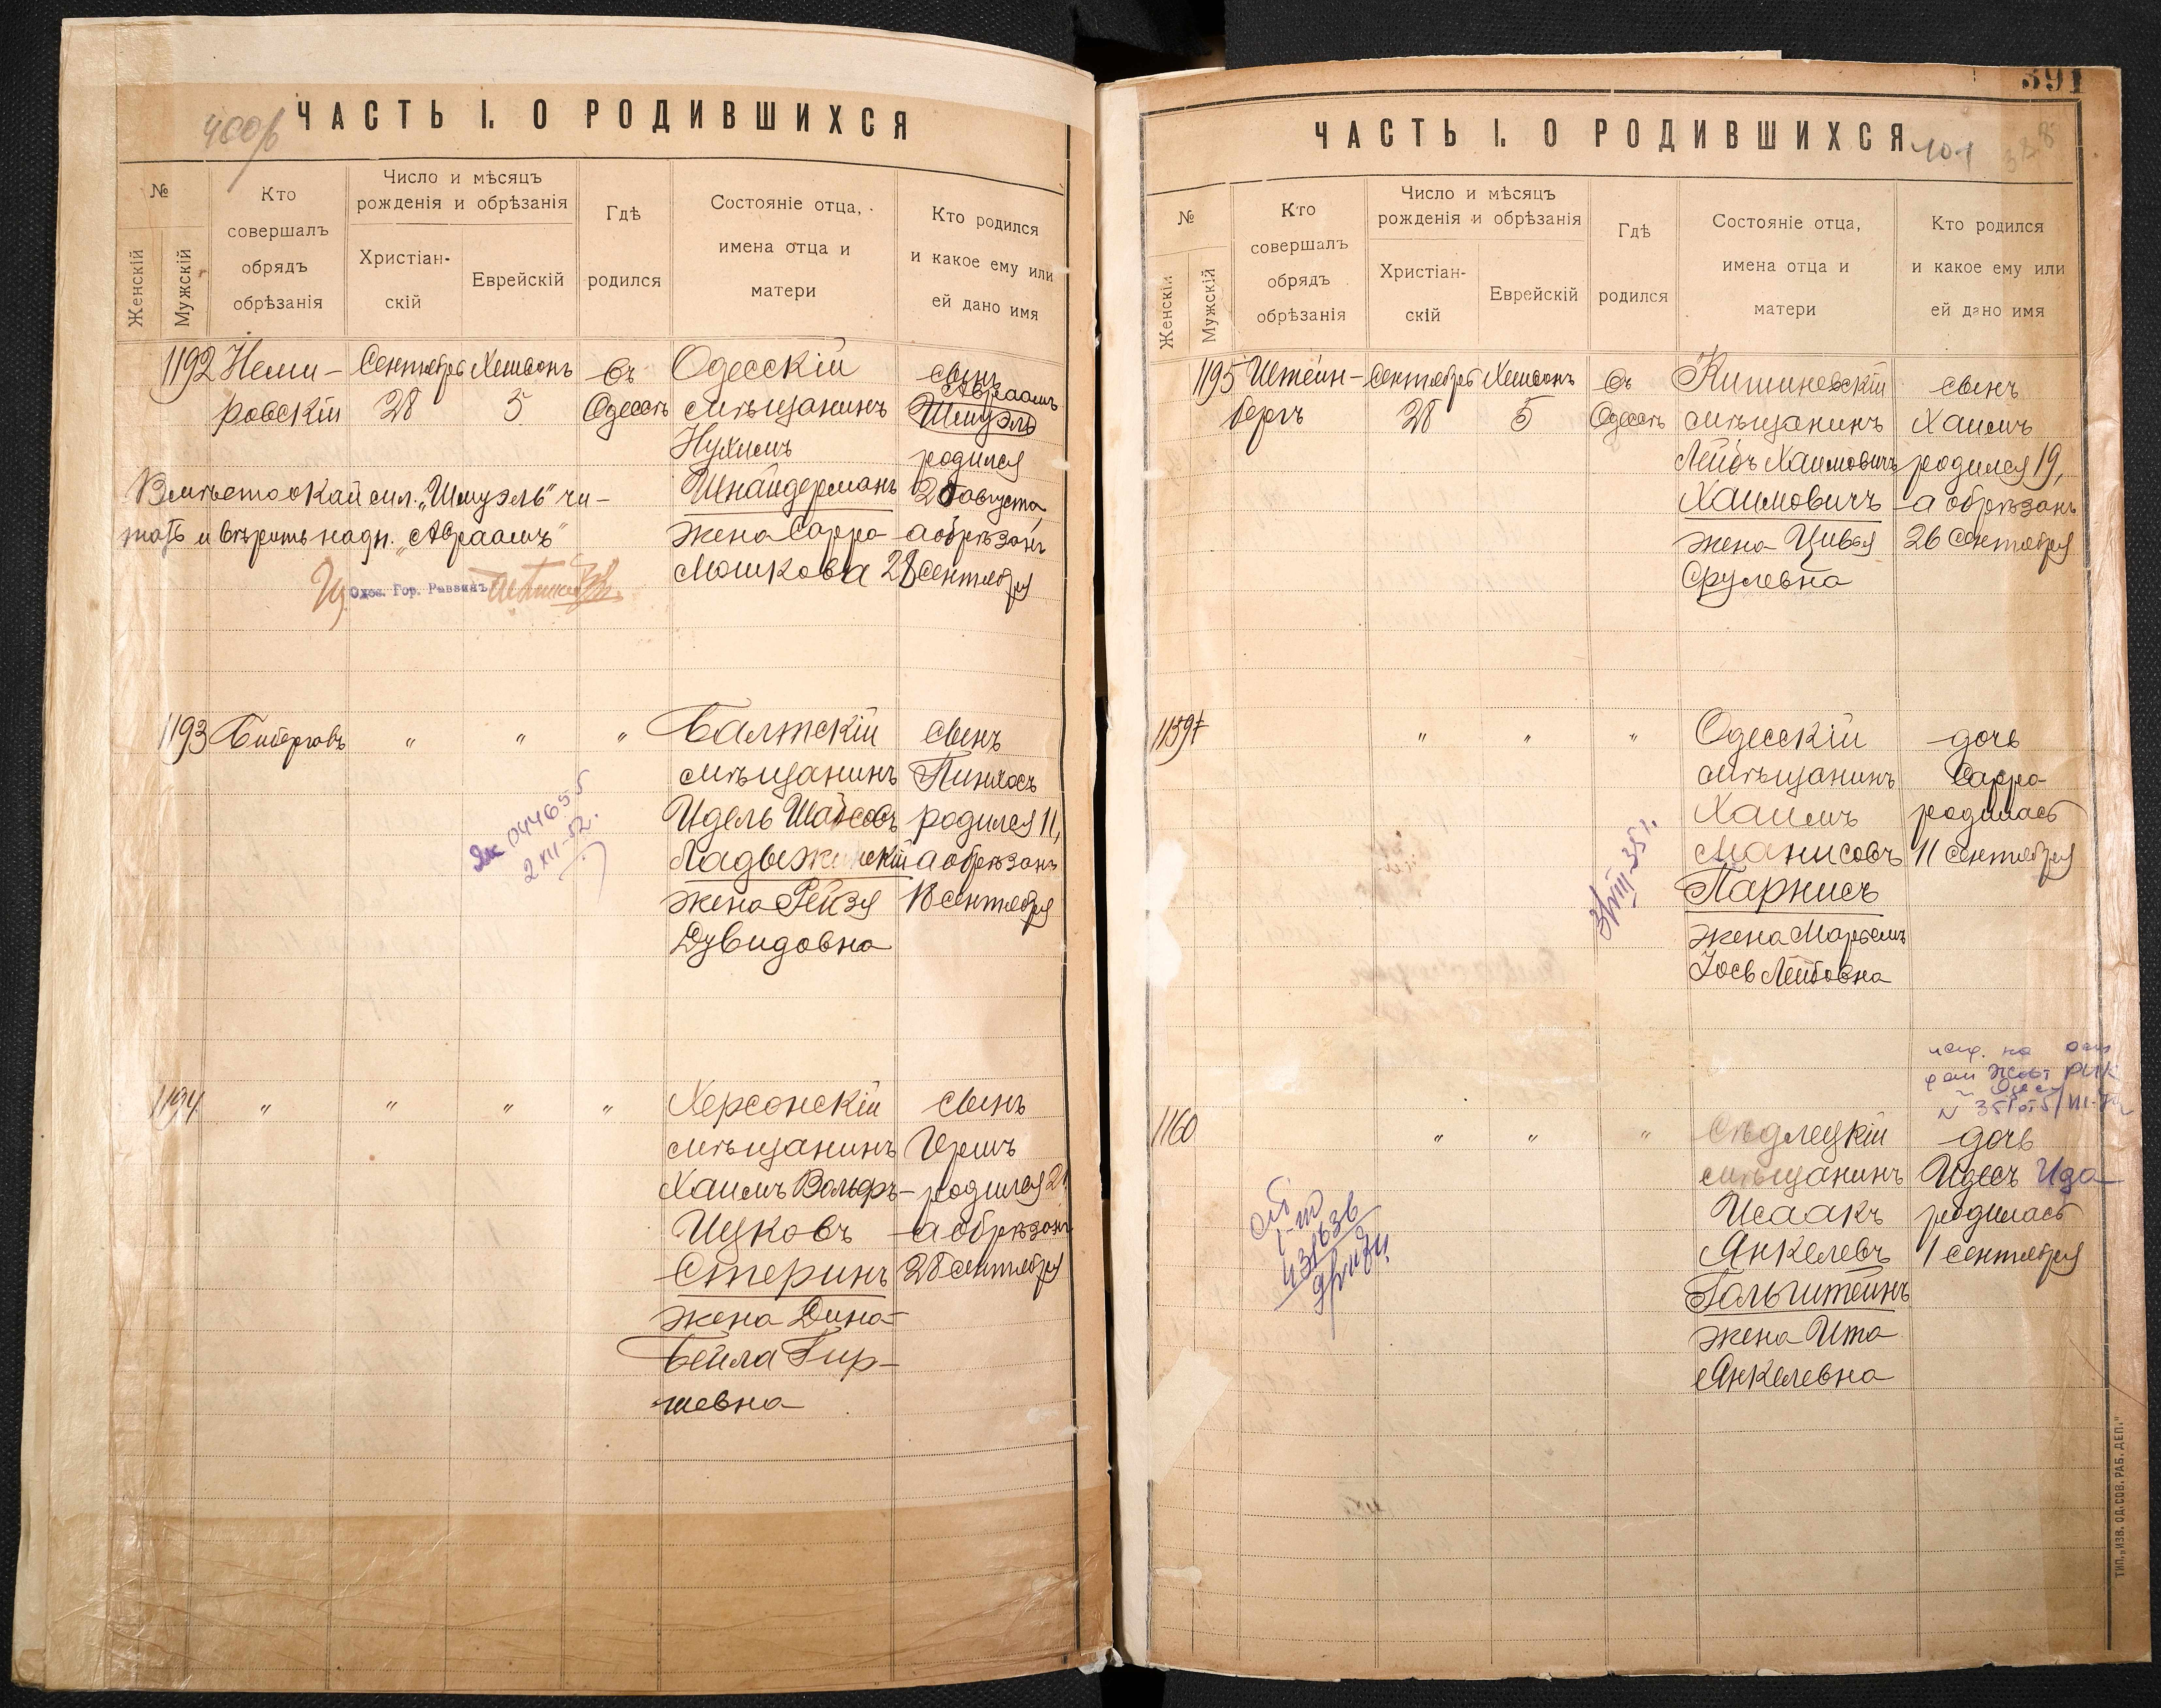 ЧАСТЬ I. О РОДИВШИХСЯ
№
Женскій
Мужскій
Кто
совершалъ
обрядъ
обрѣзанія
Число и мѣсяцъ
рожденія и обрѣзанія
Христіан-
скій
Еврейскій
Гдѣ
родился
Состояніе отца,
имена отца и
матери
Кто родился
и какое ему или
ей дано имя
1192 Неми- Сентябрь Хешвонъ Въ Одесскій сынъ
Авраамъ
ровскій 28 5 Одессѣ мѣщанинъ Шмуэль
Нухимъ родился
Шнайдерманъ августа,
жена Сарра а обрѣзанъ
Мошкова 28 Сентября
Вмѣсто окаймл. „Шмуэль" чи-
тать и вѣрить надп. „Авраамъ"
Одес. Гор. Раввинъ
1193 " " " Балтскій сынъ
мѣщанинъ Пинхосъ
Идель родился 11,
Ладыжинскій а обрѣзанъ
жена Рейзя 18 Сентября
Дувидовна
044655
2 XII-52.
1194 " " " " Херсонскій сынъ
мѣщанинъ Гершъ
Хаимъ Вольфъ- родился 21
Ицковъ а обрѣзанъ
Стеринъ 28 Сентября
жена Дина-
Бейла Гир-
шевна
391
ЧАСТЬ I. О РОДИВШИХСЯ
401
328
№
Женскій
Мужскій
Кто
совершалъ
обрядъ
обрѣзанія
Число и мѣсяцъ
рожденія и обрѣзанія
Христіан-
скій
Еврейскій
Гдѣ
родился
Состояніе отца,
имена отца и
матери
Кто родился
и какое ему или
ей дано имя
1195 Штейн- Сентябрь Хешвонъ Въ Кишиневскій сынъ
бергъ 28 5 Одессѣ мѣщанинъ Хаимъ
Лейбъ Хаимовичъ родился 19,
Хаимовичъ а обрѣзанъ
жена Цивья 26 Сентября
Срулевна
1159 " " " Одесскій дочь
мѣщанинъ Сарра
Хаимъ родилась
Манисовъ 11 Сентября
Парнисъ
жена Марьемъ
Іось Лейбовна
31/VIII-35 г.
1160 " " " Сѣдлецкій дочь
мѣщанинъ Идесъ Ида
Исаакъ родилась
Янкелевъ 1 Сентября
Гольштейнъ
жена Ита
Янкелевна
431636
ТИП. „ИЗВ. ОД. СОВ. РАБ. ДЕП."